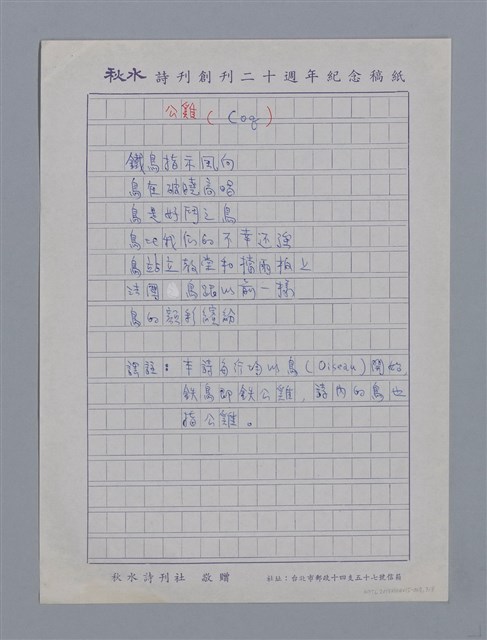 秋水 詩刊創刊二十週年紀念稿紙
公雞(Coq)
鐵鳥指示風向
鳥在破曉高唱
鳥是好鬥之鳥
鳥比我們的不幸還強
鳥站立教堂和牆兩柏上
法國 鳥跟以前一樣
鳥的顏彩繽紛
譯註：本詩每行均以鳥(Oiseau)開始,
鉄鳥即鉄公雞，詩內的鳥也
指公雞。
秋水詩刊社 敬贈
社址：台北市郵政十四支五十七號信箱